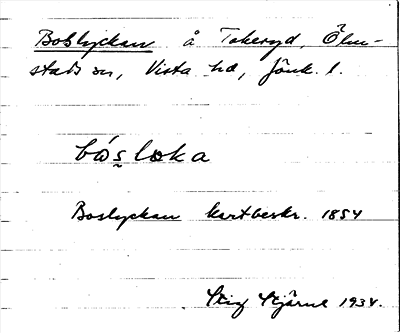 Boslyckan å Tokeryd, Ölm-
stads sn, Vista hd, Jönk. l.
bósloka
Boslyckan kartbeskr. 1854
Stig Stjärne 1934.